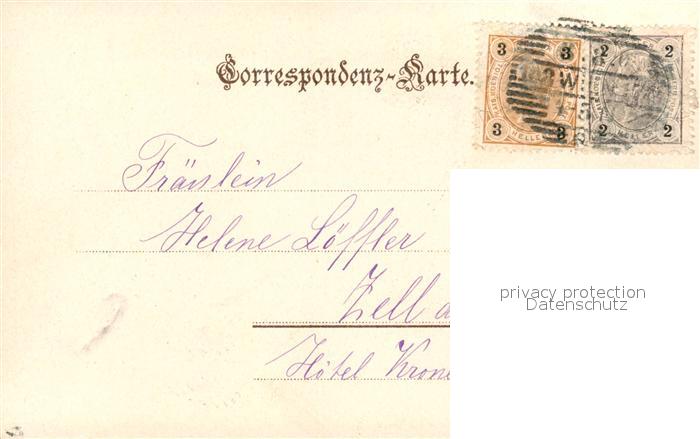 Correspondenz-Karte.
3 3 2 2
3 HELLER 3 2 HELLER 2
Fräulein
Helene Löffler
Zell a
Hôtel Krone
privacy protection
Datenschutz